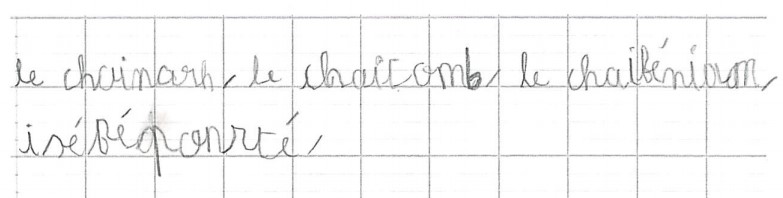 le chainarh, le chaitomb, le chaibéninom,
isébéponrté,